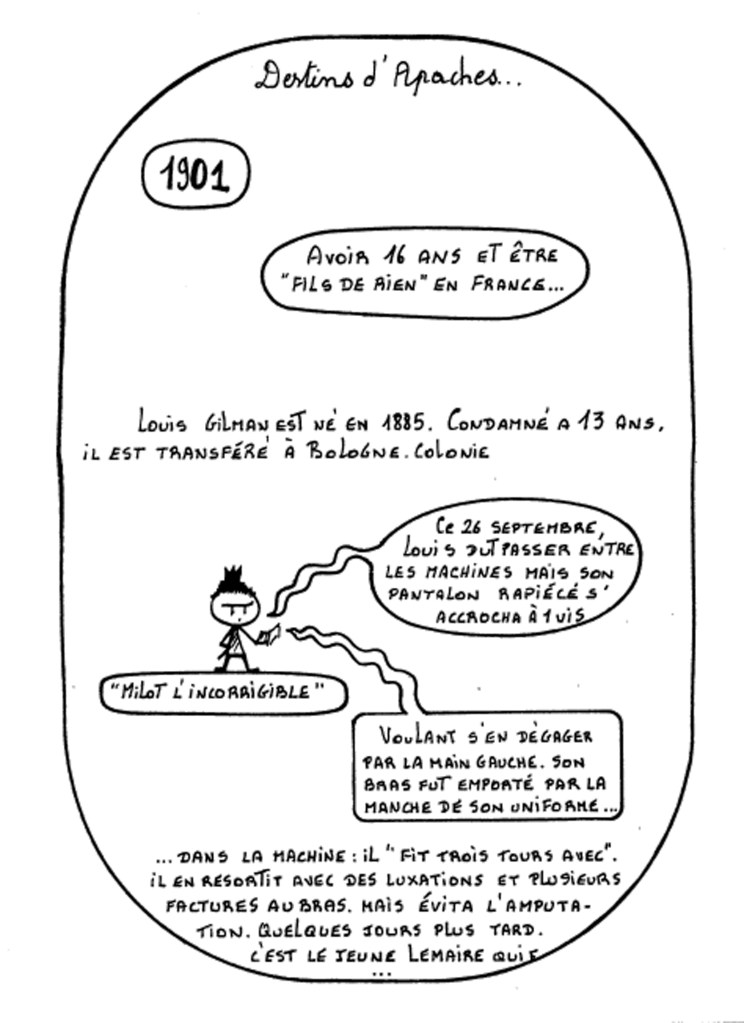 Destins d'Apaches...
1901
AVOIR 16 ANS ET ÊTRE
"FILS DE RIEN" EN FRANCE...
LOUIS GILMAN EST NÉ EN 1885. CONDAMNÉ A 13 ANS,
IL EST TRANSFÉRÉ À BOLOGNE. COLONIE
CE 26 SEPTEMBRE,
LOUIS DUT PASSER ENTRE
LES MACHINES MAIS SON
PANTALON RAPIÉCÉ S'
ACCROCHA À 1 VIS
"MILOT L'INCORRIGIBLE"
VOULANT S'EN DÉGAGER
PAR LA MAIN GAUCHE. SON
BRAS FUT EMPORTÉ PAR LA
MANCHE DE SON UNIFORME...
... DANS LA MACHINE : IL "FIT TROIS TOURS AVEC".
IL EN RESORTIT AVEC DES LUXATIONS ET PLUSIEURS
FACTURES AU BRAS. MAIS ÉVITA L'AMPUTA-
TION. QUELQUES JOURS PLUS TARD.
C'EST LE JEUNE LEMAIRE QUI
...